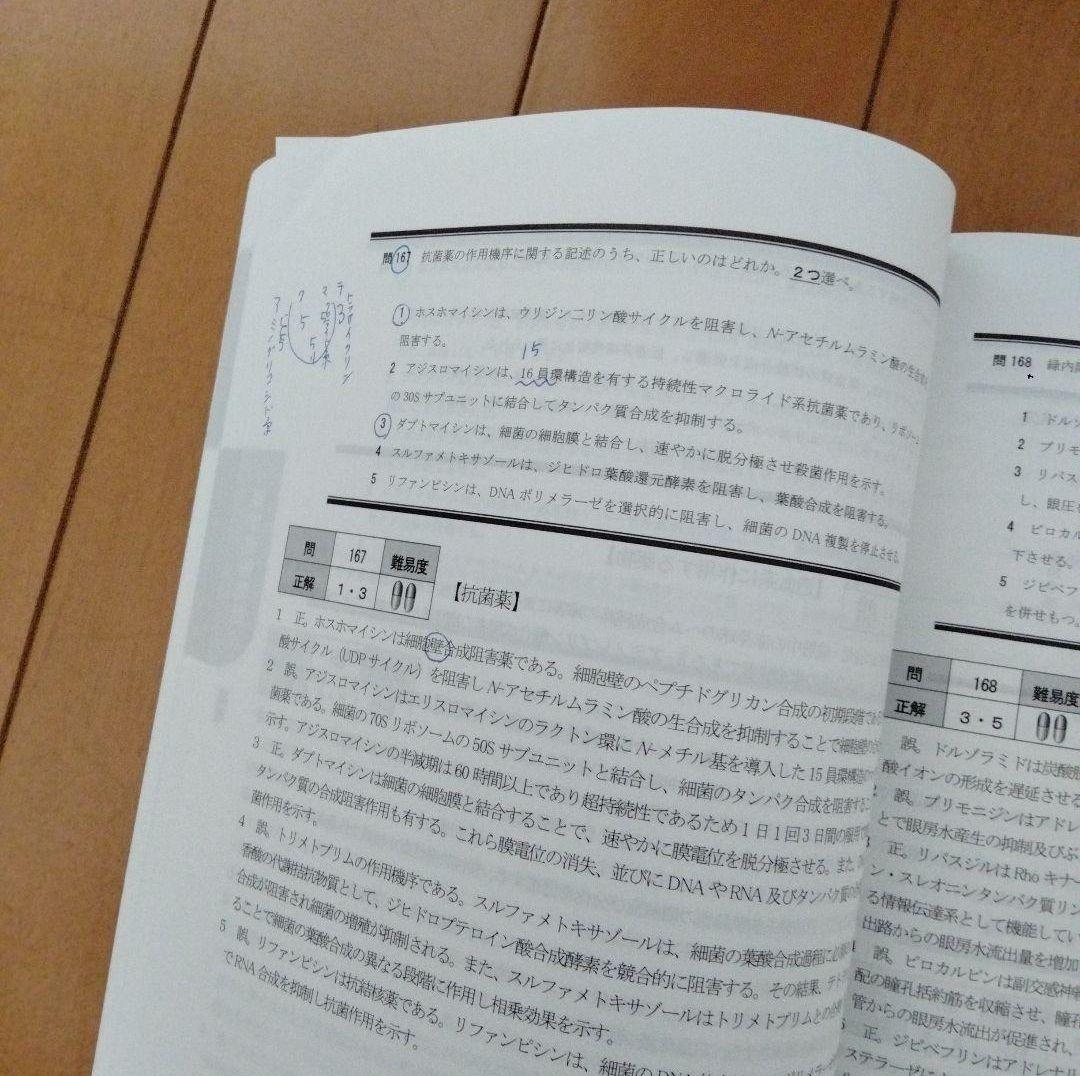 問167 抗菌薬の作用機序に関する記述のうち、正しいのはどれか。2つ選べ。
1 ホスホマイシンは、ウリジン二リン酸サイクルを阻害し、N-アセチルムラミン酸の生合成を
阻害する。
15
2 アジスロマイシンは、16員環構造を有する持続性マクロライド系抗菌薬であり、リボソーム
の30Sサブユニットに結合してタンパク質合成を抑制する。
3 ダプトマイシンは、細菌の細胞膜と結合し、速やかに脱分極させ殺菌作用を示す。
4 スルファメトキサゾールは、ジヒドロ葉酸還元酵素を阻害し、葉酸合成を阻害する。
5 リファンピシンは、DNAポリメラーゼを選択的に阻害し、細菌のDNA複製を停止させる
アミノグリコシド系
テトラサイクリン
問 167 難易度
正解 1・3
【抗菌薬】
1 正。ホスホマイシンは細胞壁合成阻害薬である。細胞壁のペプチドグリカン合成の初期段階である
酸サイクル(UDPサイクル)を阻害しN-アセチルムラミン酸の生合成を抑制することで細胞壁
2 誤。アジスロマイシンはエリスロマイシンのラクトン環にN-メチル基を導入した15員環構造
菌薬である。細菌の70Sリボソームの50Sサブユニットと結合し、細菌のタンパク合成を阻害する
示す。アジスロマイシンの半減期は60時間以上であり超持続性であるため1日1回3日間の服用
3 正。ダプトマイシンは細菌の細胞膜と結合することで、速やかに膜電位を脱分極させる。また、
タンパク質の合成阻害作用も有する。これら膜電位の消失、並びにDNAやRNA及びタンパク質の
菌作用を示す。
4 誤。トリメトプリムの作用機序である。スルファメトキサゾールは、細菌の葉酸合成過程に
香酸の代謝拮抗物質として、ジヒドロプテロイン酸合成酵素を競合的に阻害する。その結果、
合成が阻害され細菌の増殖が抑制される。また、スルファメトキサゾールはトリメトプリムとの
ることで細菌の葉酸合成の異なる段階に作用し相乗効果を示す。
5 誤。リファンピシンは抗結核薬である。リファンピシンは、細菌の
でRNA合成を抑制し抗菌作用を示す。
問168 緑内障
1 ドルゾ
2 ブリモ
3 リパス
し、眼圧を
4 ピロカル
下させる。
5 ジピベフ
を併せもつ。
問 168 難易度
正解 3・5
誤。ドルゾラミドは炭酸脱
酸イオンの形成を遅延させる
2 誤。ブリモニジンはアドレ
とで眼房水産生の抑制及びぶ
3 正。リパスジルはRhoキナー
ン・スレオニンタンパク質リン
る情報伝達系として機能してい
出路からの眼房水流出量を増加
誤。ピロカルピンは副交感神経
配の瞳孔括約筋を収縮させ、瞳孔
管からの眼房水流出が促進され、
正。ジピベフリンはアドレナリ
ステラーゼによ